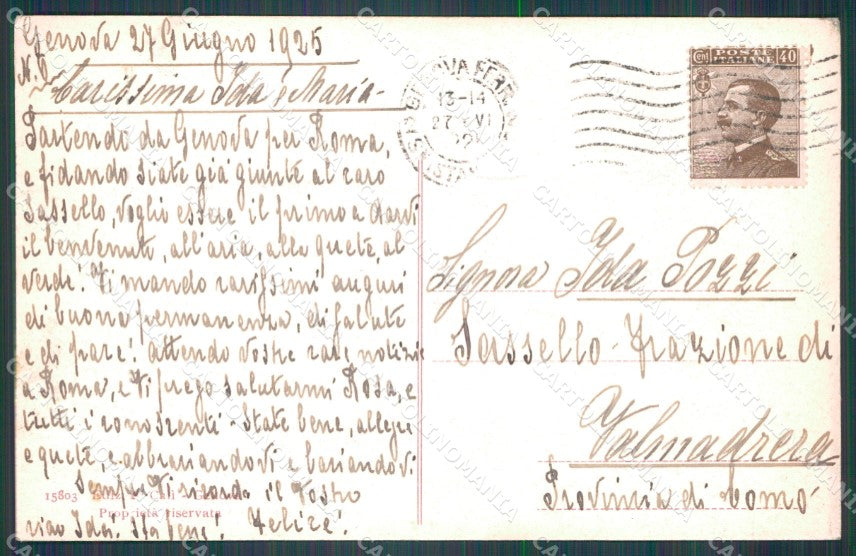 Genova 27 Giugno 1925
N. 9
Carissima Ida e Maria -
Partendo da Genova per Roma,
e fidando siate già giunte al caro
Sassello, voglio essere il primo a darvi
il benvenuto, all'aria, alla quete, al
verde! Vi mando carissimi auguri
di buona permanenza, di salute
e di pace! Attendo vostre care notizie
a Roma, e Vi prego salutarmi Rosa, e
tutti i conoscenti - State bene, allegre
e quete, e abbracciandovi e baciandovi
Sempre Vi ricorda il Vostro
Felice!
ciao Ida! Sta bene!
15803
Proprietà riservata
GENOVA FERROVIA
13-14
27 VI
POSTE
ITALIANE
Cent 40
Signora Ida Pozzi
Sassello - Frazione di
Valmadrera
Provincia di Como
CARTOLINOMANIA